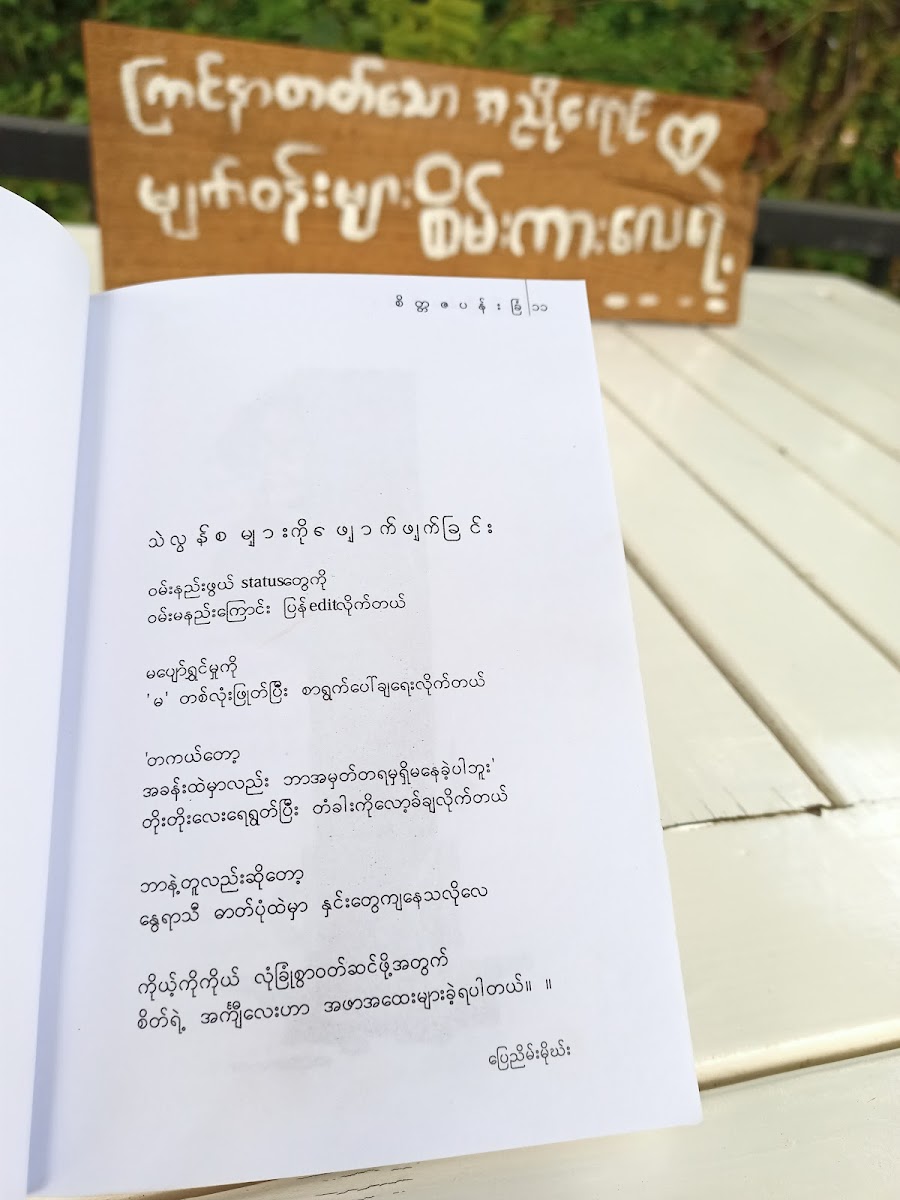 ကြင်နာတတ်သော အညိုရောင်
မျက်ဝန်းများစိမ်းကားလေရဲ့
စိတ္တဇပန်းခြံ|၁၁
သဲလွန်စများကိုဖျောက်ဖျက်ခြင်း
ဝမ်းနည်းဖွယ် statusတွေကို
ဝမ်းမနည်းကြောင်း ပြန်editလိုက်တယ်
မပျော်ရွှင်မှုကို
'မ' တစ်လုံးဖြုတ်ပြီး စာရွက်ပေါ်ချရေးလိုက်တယ်
'တကယ်တော့
အခန်းထဲမှာလည်း ဘာအမှတ်တရမှရှိမနေခဲ့ပါဘူး'
တိုးတိုးလေးရေရွတ်ပြီး တံခါးကိုလော့ခ်ချလိုက်တယ်
ဘာနဲ့တူလည်းဆိုတော့
နွေရာသီ ဓာတ်ပုံထဲမှာ နှင်းတွေကျနေသလိုလေ
ကိုယ့်ကိုကိုယ် လုံခြုံစွာဝတ်ဆင်ဖို့အတွက်
စိတ်ရဲ့ အင်္ကျီလေးဟာ အဖာအထေးများခဲ့ရပါတယ်။ ။
ပြေညိမ်းမိုဃ်း